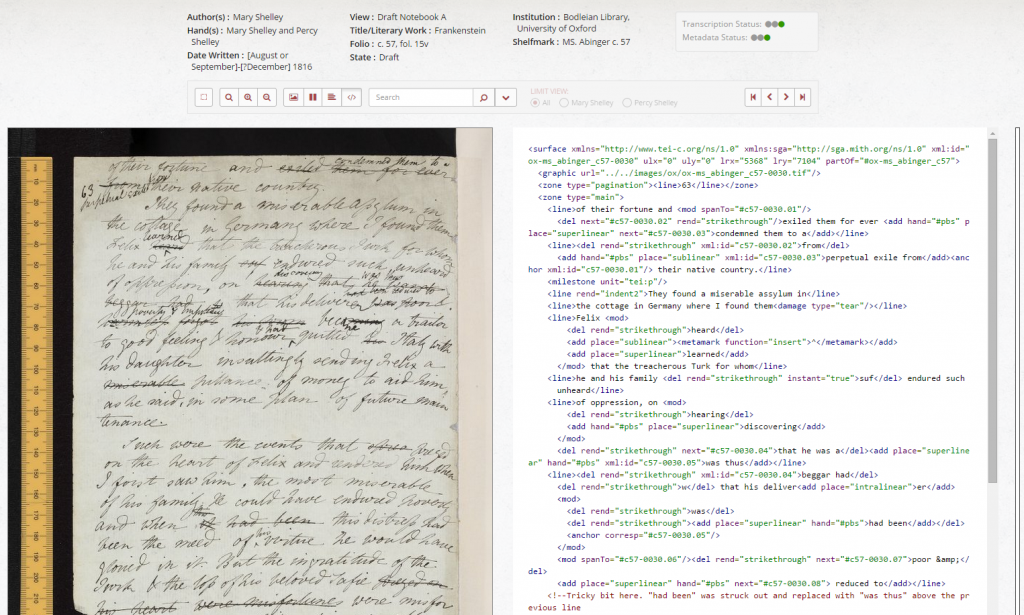 Author(s) : Mary Shelley
Hand(s) : Mary Shelley and Percy
Shelley
Date Written : [August or
September]-[?December] 1816
View : Draft Notebook A
Title/Literary Work : Frankenstein
Folio : c. 57, fol. 15v
State : Draft
Institution : Bodleian Library,
University of Oxford
Shelfmark : MS. Abinger c. 57
Transcription Status:
Metadata Status:
Search
LIMIT VIEW:
All Mary Shelley Percy Shelley
of their fortune and exiled them for ever
condemned them to a
63
perpetual exile from
from their native country.
They found a miserable assylum in
the cottage in Germany where I found them
learned
Felix heard that the treacherous Turk for whom
he and his family suf endured such unheard
discovering was thus
of oppression, on hearing that he was a
had been reduced to
beggar had that his deliverer was poor &
poverty & impotence
became a traitor
& had
to good feeling & honour, quitted Italy with
his daughter insultingly sending Felix a
miserable pittance of money to aid him
as he said, in some plan of future main
tenance.
Such were the events that preyed
on the heart of Felix and rendered him when
I first saw him, the most miserable
of his family. He could have endured poverty
and when this distress had
been the meed of his virtue he would have
gloried in it. But the ingratitude of the
Turk & the loss of his beloved Safie
his heart were misfortunes were misfor
<surface xmlns="http://www.tei-c.org/ns/1.0" xmlns:sga="http://sga.mith.org/ns/1.0" xml:id="
ox-ms_abinger_c57-0030" ulx="0" uly="0" lrx="5368" lry="7104" partOf="#ox-ms_abinger_c57">
<graphic url="../../images/ox/ox-ms_abinger_c57-0030.tif"/>
<zone type="pagination"><line>63</line></zone>
<zone type="main">
<line>of their fortune and <mod spanTo="#c57-0030.01"/>
<del next="#c57-0030.02" rend="strikethrough"/>exiled them for ever <add hand="#pbs" p
lace="superlinear" next="#c57-0030.03">condemned them to a</add></line>
<line><del rend="strikethrough" xml:id="c57-0030.02">from</del>
<add hand="#pbs" place="sublinear" xml:id="c57-0030.03">perpetual exile from</add><anc
hor xml:id="c57-0030.01"/> their native country.</line>
<milestone unit="tei:p"/>
<line rend="indent2">They found a miserable assylum in</line>
<line>the cottage in Germany where I found them<damage type="tear"/></line>
<line>Felix <mod>
<del rend="strikethrough">heard</del>
<add place="sublinear"><metamark function="insert">^</metamark></add>
<add place="superlinear">learned</add>
</mod> that the treacherous Turk for whom</line>
<line>he and his family <del rend="strikethrough" instant="true">suf</del> endured such
unheard</line>
<line>of oppression, on <mod>
<del rend="strikethrough">hearing</del>
<add hand="#pbs" place="superlinear">discovering</add>
</mod>
<del rend="strikethrough" next="#c57-0030.04">that he was a</del><add place="superline
ar" hand="#pbs" xml:id="c57-0030.05">was thus</add></line>
<line><del rend="strikethrough" xml:id="c57-0030.04">beggar had</del>
<del rend="strikethrough">w</del> that his deliver<add place="intralinear">er</add>
<mod>
<del rend="strikethrough">was</del>
<del rend="strikethrough"><add place="superlinear" hand="#pbs">had been</add></del>
<anchor corresp="#c57-0030.05"/>
</mod>
<mod spanTo="#c57-0030.06"/><del rend="strikethrough" next="#c57-0030.07">poor &amp;</
del>
<add place="superlinear" hand="#pbs" next="#c57-0030.08"> reduced to</add></line>
<!--Tricky bit here. "had been" was struck out and replaced with "was thus" above the pr
evious line